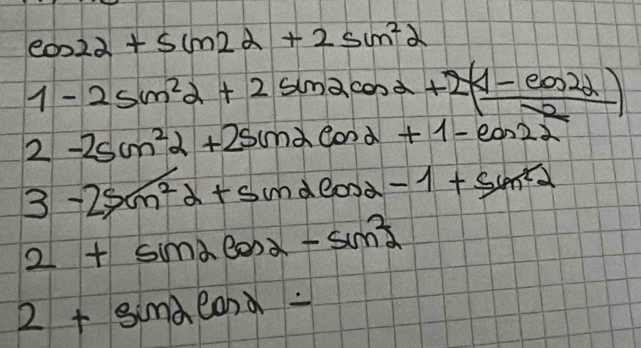 cos2α + sin2α + 2sin²α
1 - 2sin²α + 2sinαcosα + 2(1 - cos2α / 2)
2 - 2sin²α + 2sinαcosα + 1 - cos2α
3 - 2sin²α + sinαcosα - 1 + sin²α
2 + sinαcosα - sin²α
2 + sinαcosα -